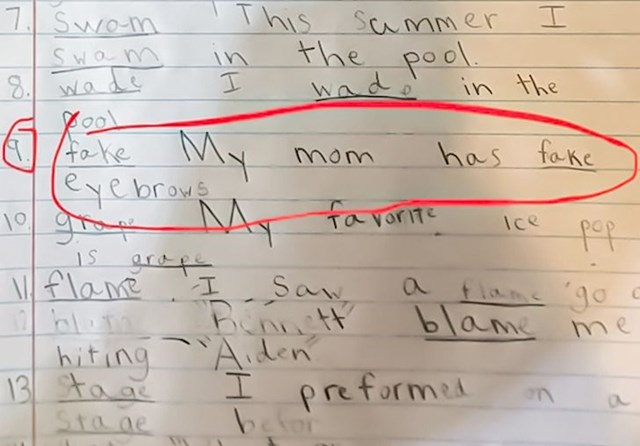 7. Swam This summer I
swam in the pool.
8. wade I wade in the
pool
9. fake My mom has fake
eyebrows
10. grape My favorite ice pop
is grape
11. flame I saw a flame go
"Bennett" blame me
hiting "Aiden"
13 stage I preformed on a
stage befor